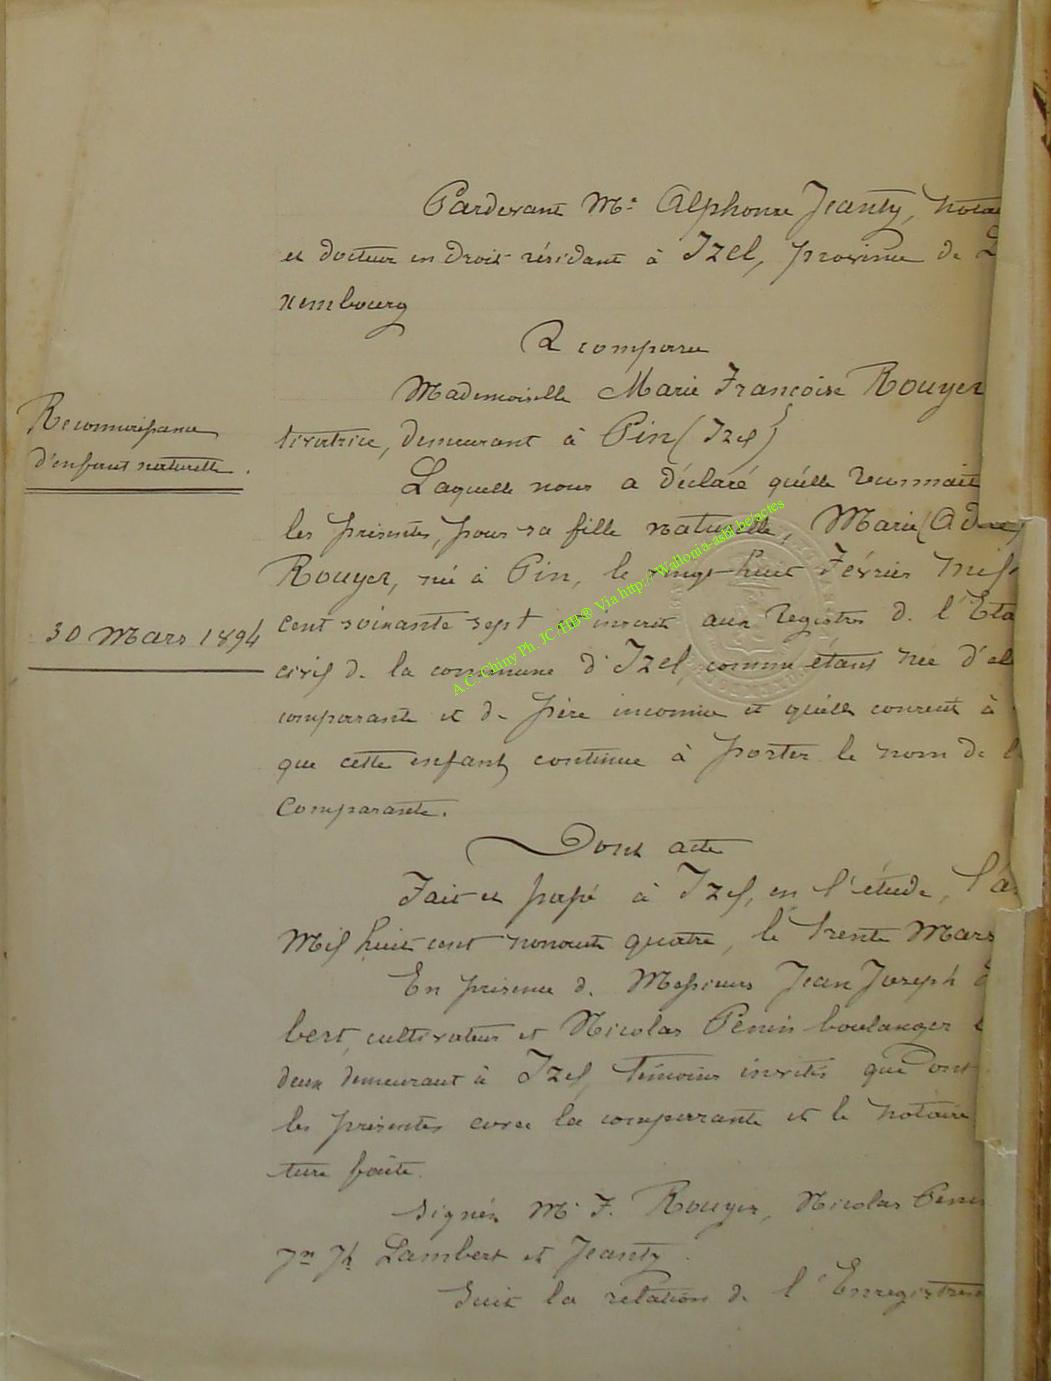 Pardevant Me Alphonse Jeanty, nota
et docteur en droit résidant à Izel, province de L
xembourg
A comparu
Mademoiselle Marie Françoise Rouyer
Reconnaissance
d'enfant naturelle.
demeurant à Pin (Izel)
Laquelle nous a déclaré qu'elle reconnait
les présentes, pour sa fille naturelle, Marie (Adne)
Rouyer, née à Pin, le vingt-huit Février mil
30 Mars 1894
cent soixante sept inscrit aux registres de l'Eta
civil de la commune d'Izel, comme étant née d'el
comparante et de père inconnu et qu'elle consent à
que cette enfant, continue à porter le nom de l
Comparante.
Dont acte
Fait et passé à Izel, en l'étude, l'a
Mil huit cent nonante quatre, le trente Mars
En présence de Messieurs Jean Joseph
bert, cultivateur et Nicolas Penin boulanger
deux demeurant à Izel, témoins invités qui ont
les présentes avec la comparante et le notaire
ture faite.
Signés M. F. Rouyer, Nicolas Peni
Jn Jh Lambert et Jeanty.
Suit la relation de l'Enregistrem
A.C. Chiny Ph. JC.HB® Via http://Wallonia-asbl.be/actes